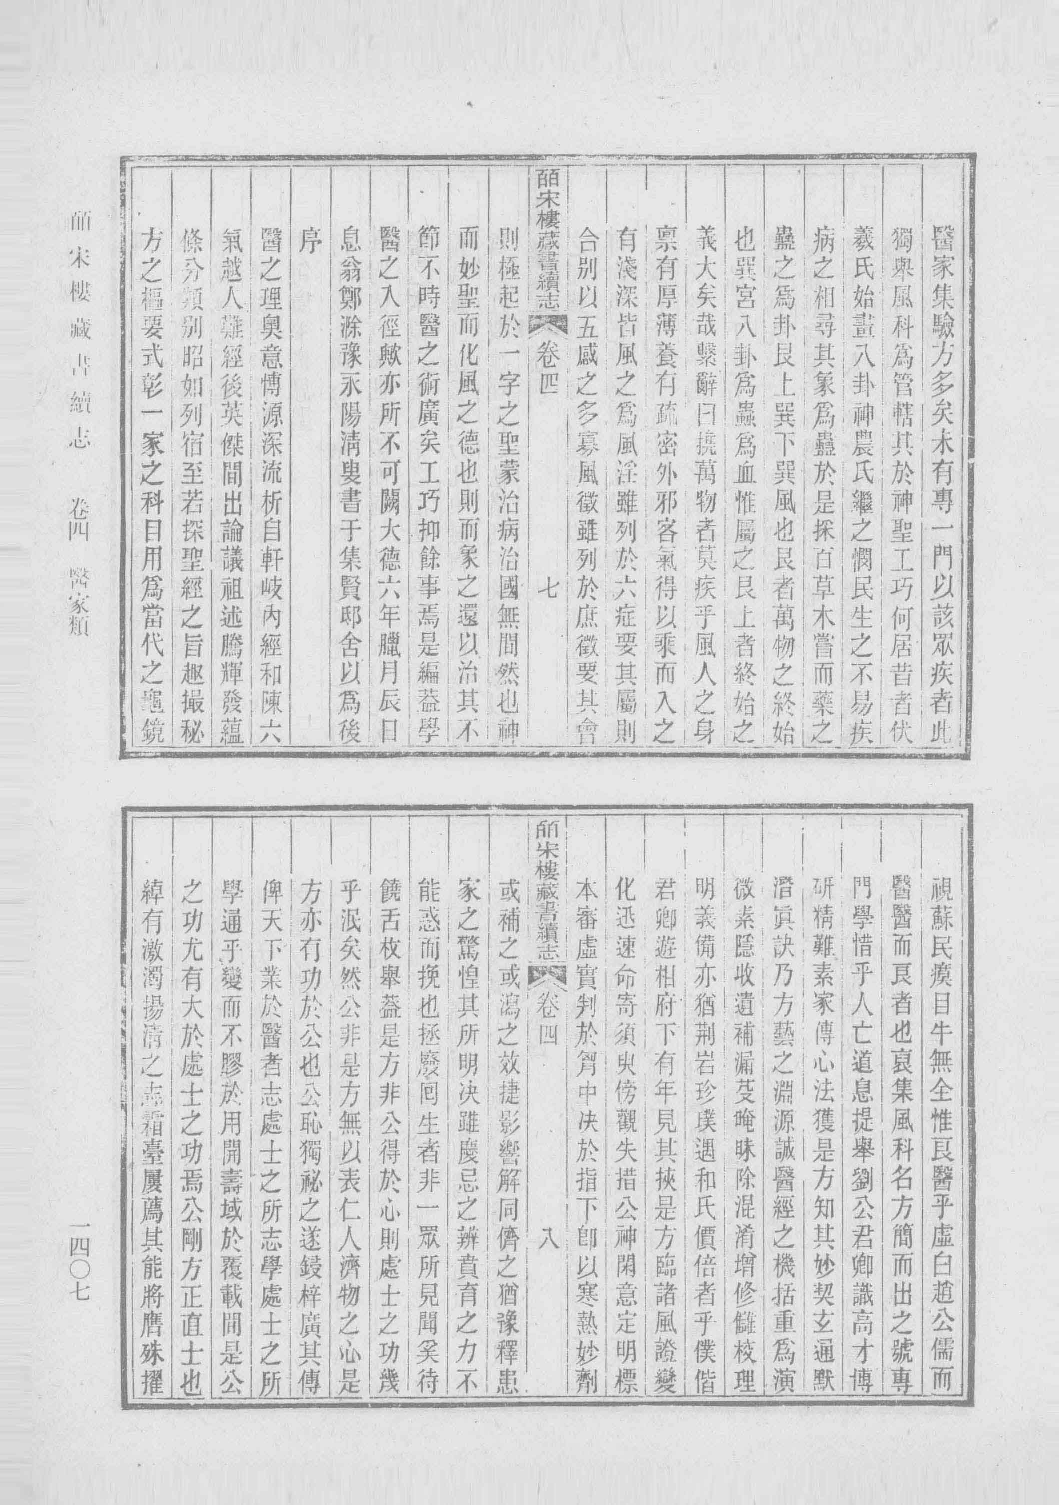 醫家集驗方多矣未有專一門以該眾疾者此
獨與風科爲管轄其於神聖工巧何居昔者伏
羲氏始畫八卦神農氏繼之憫民生之不易疾
病之相尋其象爲蠱於是採百草木嘗而藥之
蠱之爲卦艮上巽下巽風也艮者萬物之終始
也巽宮八卦爲蟲爲血惟屬之艮上者終始之
義大矣哉繫辭曰撓萬物者莫疾乎風人之身
稟有厚薄養有疏密外邪客氣得以乘而入之
有淺深皆風之爲風淫雖列於六症要其屬則
合别以五感之多寡風徵雖列於庶徵要其會
皕宋樓藏書續志 卷四 七
則極起於一字之聖蒙治病治國無間然也神
而妙聖而化風之德也則而象之還以治其不
節不時醫之術廣矣工巧抑餘事焉是編葢學
醫之入徑歟亦所不可闕大德六年臘月辰日
息翁鄭滁豫永陽清叟書于集賢邸舍以爲後
序
醫之理奥意博源深流析自軒岐內經和陳六
氣越人難經後英傑間出論議祖述騰輝發蘊
條分類别昭如列宿至若探聖經之旨趣撮秘
方之樞要式彰一家之科目用爲當代之龜鏡
視蘇民瘼目牛無全惟良醫乎虛白趙公儒而
醫醫而良者也裒集風科名方簡而出之號專
門學惜乎人亡道息提舉劉公君卿識高才博
研精難素家傳心法獲是方知其妙契玄通默
潛眞訣乃方藝之淵源誠醫經之機括重爲演
微素隱收遺補漏芟晻昧除混淆增修讎校理
明義備亦猶荆岩珍璞遇和氏價倍者乎僕偕
君卿遊相府下有年見其挾是方臨諸風證變
化迅速命寄須臾傍觀失措公神閑意定明標
本審虛實判於胷中决於指下卽以寒熱妙劑
皕宋樓藏書續志 卷四 八
或補之或瀉之效捷影響解同儕之猶豫釋患
家之驚惶其所明决雖慶忌之辨賁育之力不
能惑而挽也拯廢囘生者非一眾所見聞奚待
饒舌枚舉葢是方非公得於心則處士之功幾
乎泯矣然公非是方無以表仁人濟物之心是
方亦有功於公也公恥獨祕之遂鋟梓廣其傳
俾天下業於醫者志處士之所志學處士之所
學通乎變而不膠於用開壽域於覆載間是公
之功尤有大於處士之功焉公剛方正直士也
綽有激濁揚清之志霜臺屢薦其能將膺殊擢
皕宋樓藏書續志 卷四 醫家類
一四〇七